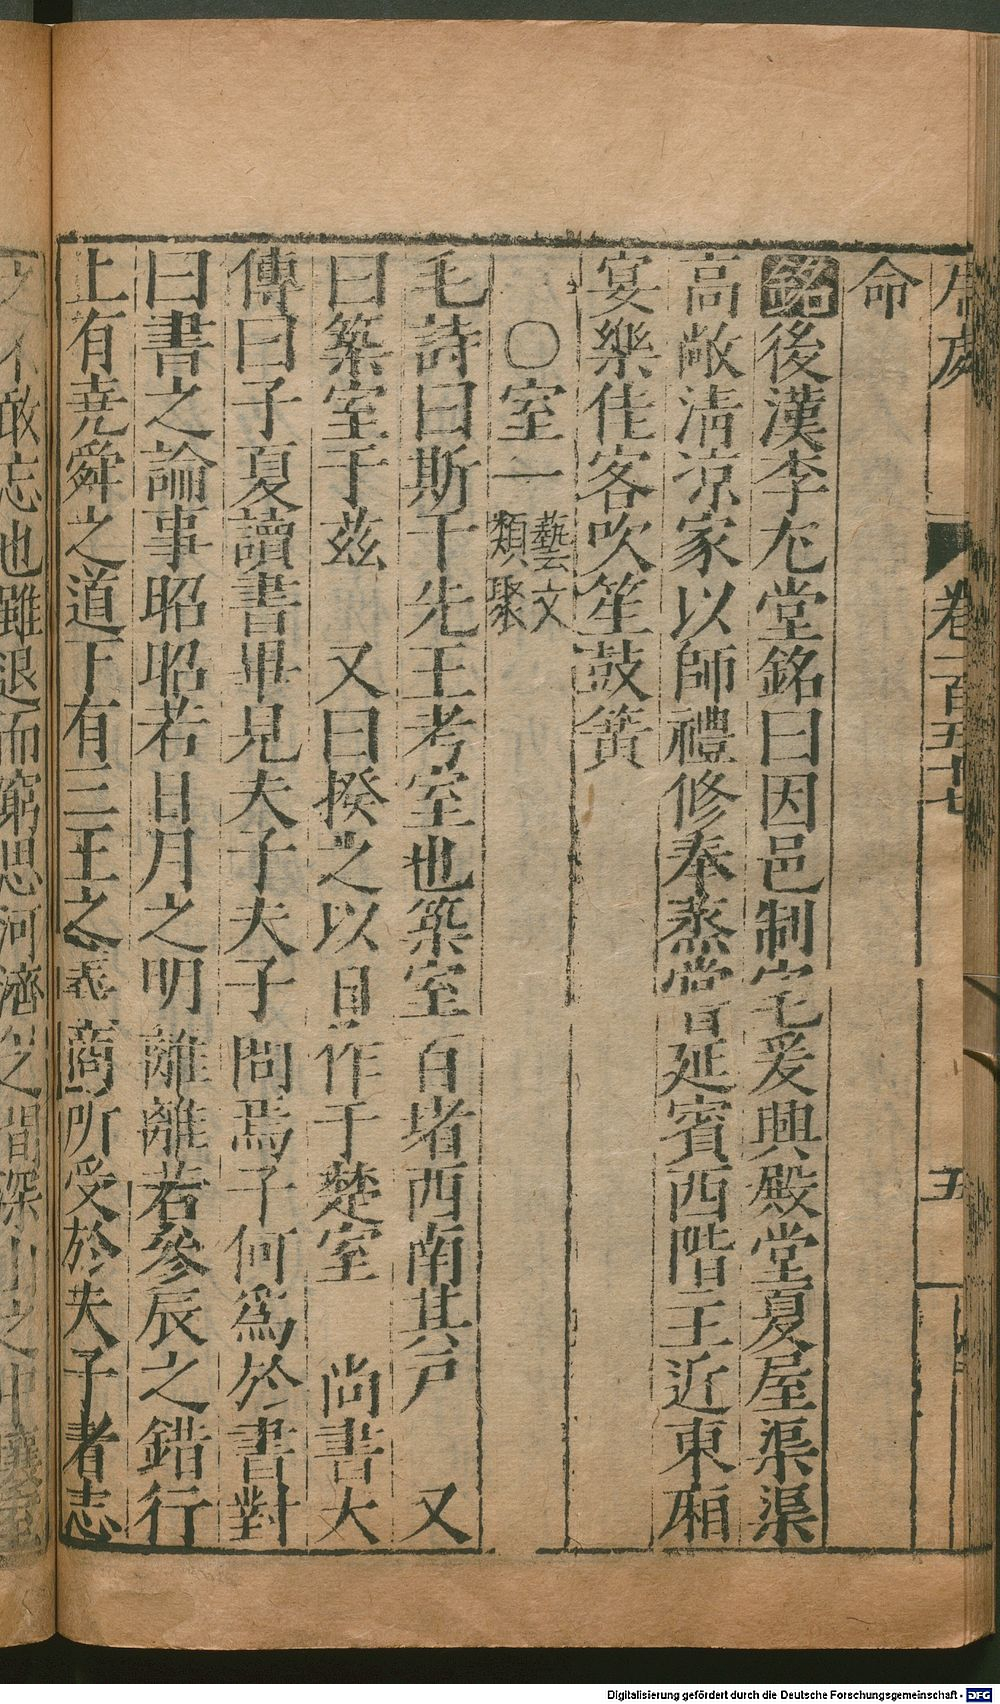 居處
卷一百五十七
五
命
銘後漢李尤堂銘曰因邑制宅爰興殿堂夏屋渠渠
高敞清涼家以師禮修奉蒸嘗延賓西階王近東厢
宴樂佳客吹笙鼓簧
○室一藝文類聚
毛詩曰斯干先王考室也築室百堵西南其戸 又
曰築室于茲 又曰揆之以日作于楚室 尚書大
傳曰子夏讀書畢見夫子夫子問焉子何爲於書對
曰書之論事昭昭若日月之明離離若參辰之錯行
上有堯舜之道下有三王之義商所受於夫子者志
之不敢忘也雖退而窮思河濟之間深山之中壤室
Digitalisierung gefördert durch die Deutsche Forschungsgemeinschaft - DFG